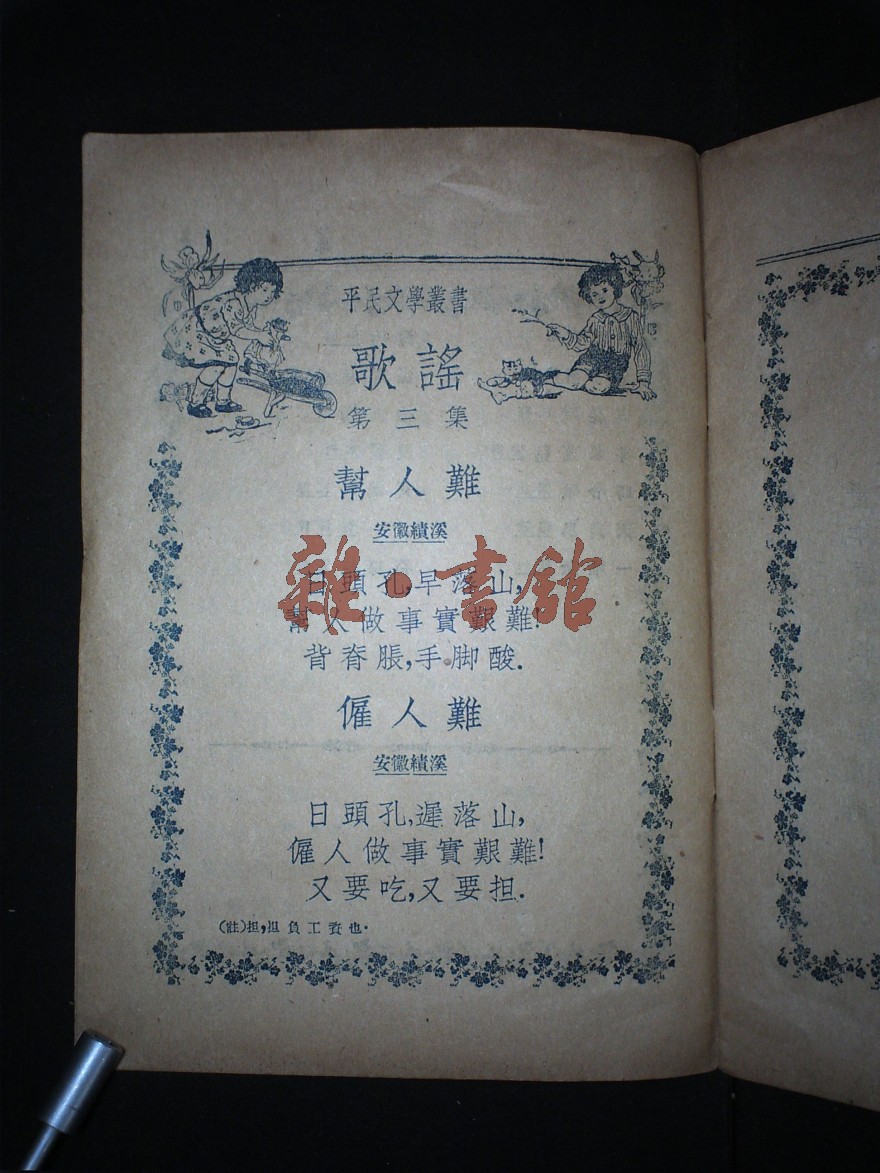 平民文學叢書
歌謠
第三集
幫人難
安徽績溪
日頭孔,早落山,
幫人做事實艱難!
背脊脹,手脚酸.
僱人難
安徽績溪
日頭孔,遲落山,
僱人做事實艱難!
又要吃,又要担.
(註)担,担負工資也.
雜·書館